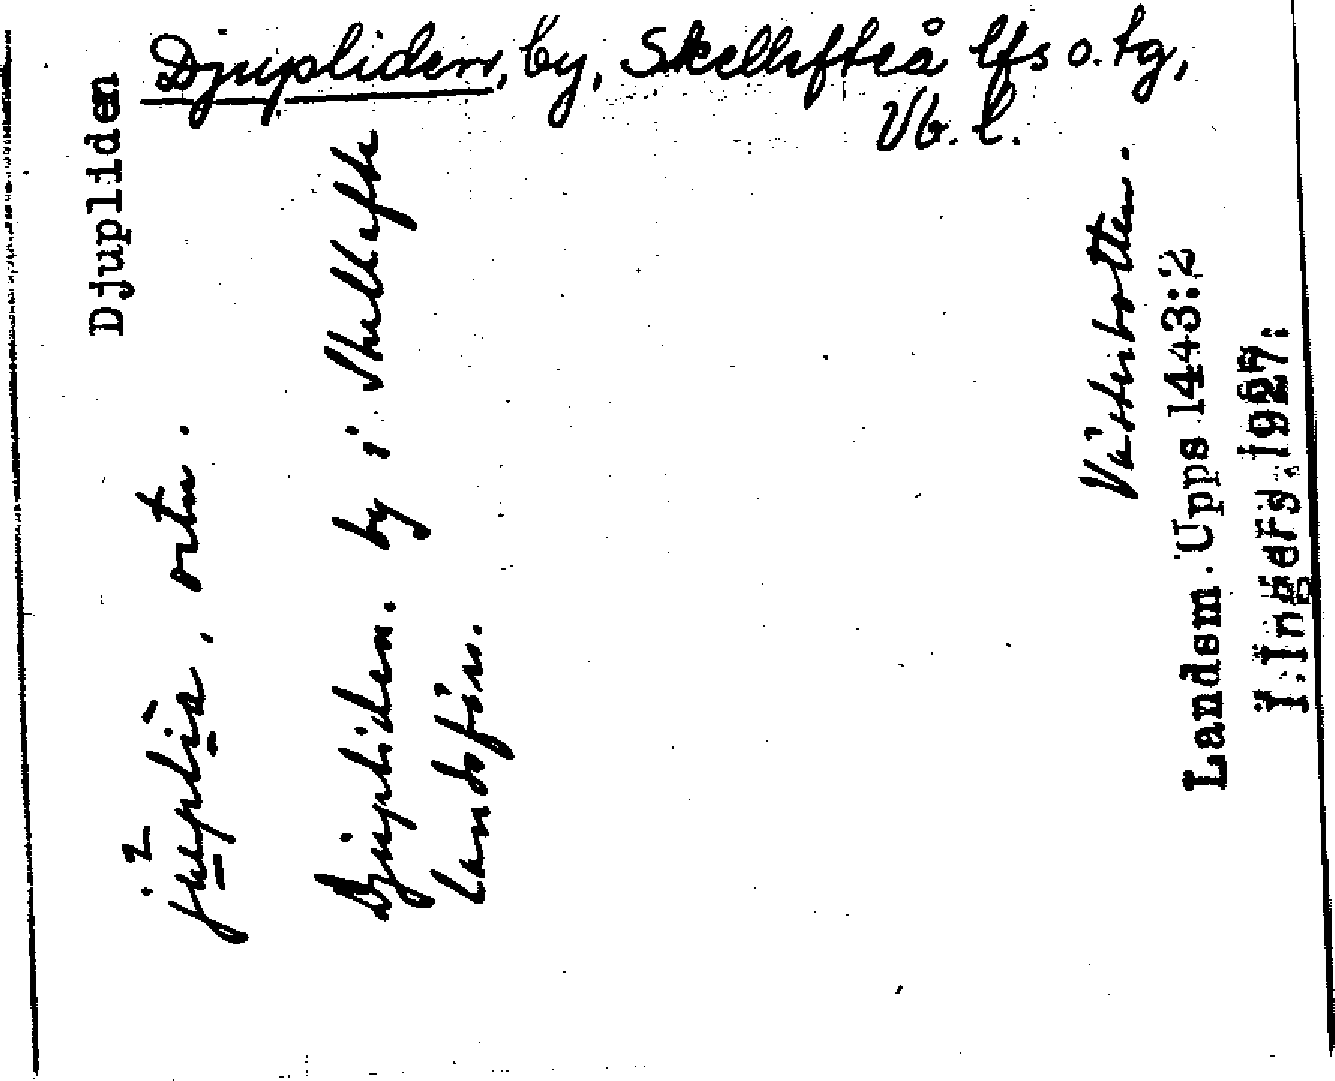 Djupliden, by, Skellefteå lfs o. tg,
Vb. l.
Djupliden
juplia, ortn.
Djupliden. by i Skellefte
landsförs.
Västerbotten.
Landsm. Upps 1443:2
I. Ingers. 1927.